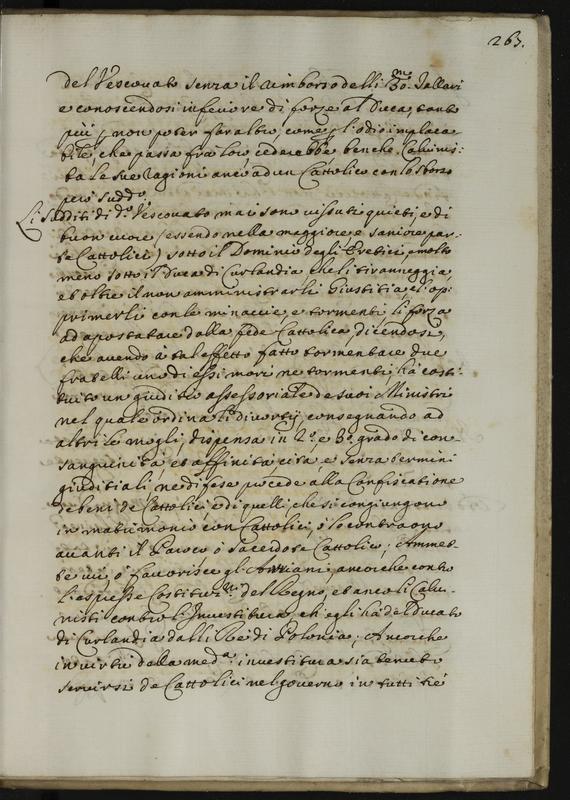 263.
del Vescovato senza il rimborso delli 30.m Tallari
e conoscendosi inferiore di forze al Duca, tanto
più non poter far altro, come l'odio implaca-
bile, che passa frà loro cederebbe benche Calvinis:
ta le sue ragioni anco ad un Cattolico con lo sborso
però sudd.o
Li Sudditi di d.o Vescovato mai sono vissuti quieti, e di
buon cuore (essendo nella maggiore e saniore par-
te Cattolici) sotto il Dominio degli Eretici, e molto
meno sotto il Duca di Curlandia che li tiranneggia
et oltre il non amministrarli Giustitia, et op:
primerli con le minaccie, e tormenti li forza
ad apostatare dalla fede Cattolica, dicendosi,
che avendo à tal effetto fatto tormentare due
fratelli uno di essi morì ne tormenti, hà costi-
tuito un giuditio assessoriale de suoi Ministri
nel quale ordina li divortij consegnando ad
altri le mogli, dispensa in 2.o e 3.o grado di con-
sanguinità et affinità, cita e senza termini
giuditiali, ne difese procede alla Confiscatione
de beni de Cattolici e di quelli, che si congiungono
in matrimonio con Cattolici, ò lo contraono
avanti il Paroco ò Sacerdote Cattolico; Ammet-
te vi, ò favorisce gl'Arriani, ancorche contro
l'espresse Costituz.ni del Regno, et anco li Calvi-
nisti contro l'Investitura, ch'egli hà del Ducato
di Curlandia dalli Re di Polonia; Ancorche
in virtù della med.a investitura sia tenuto
servirsi de Cattolici nel governo in tutti li